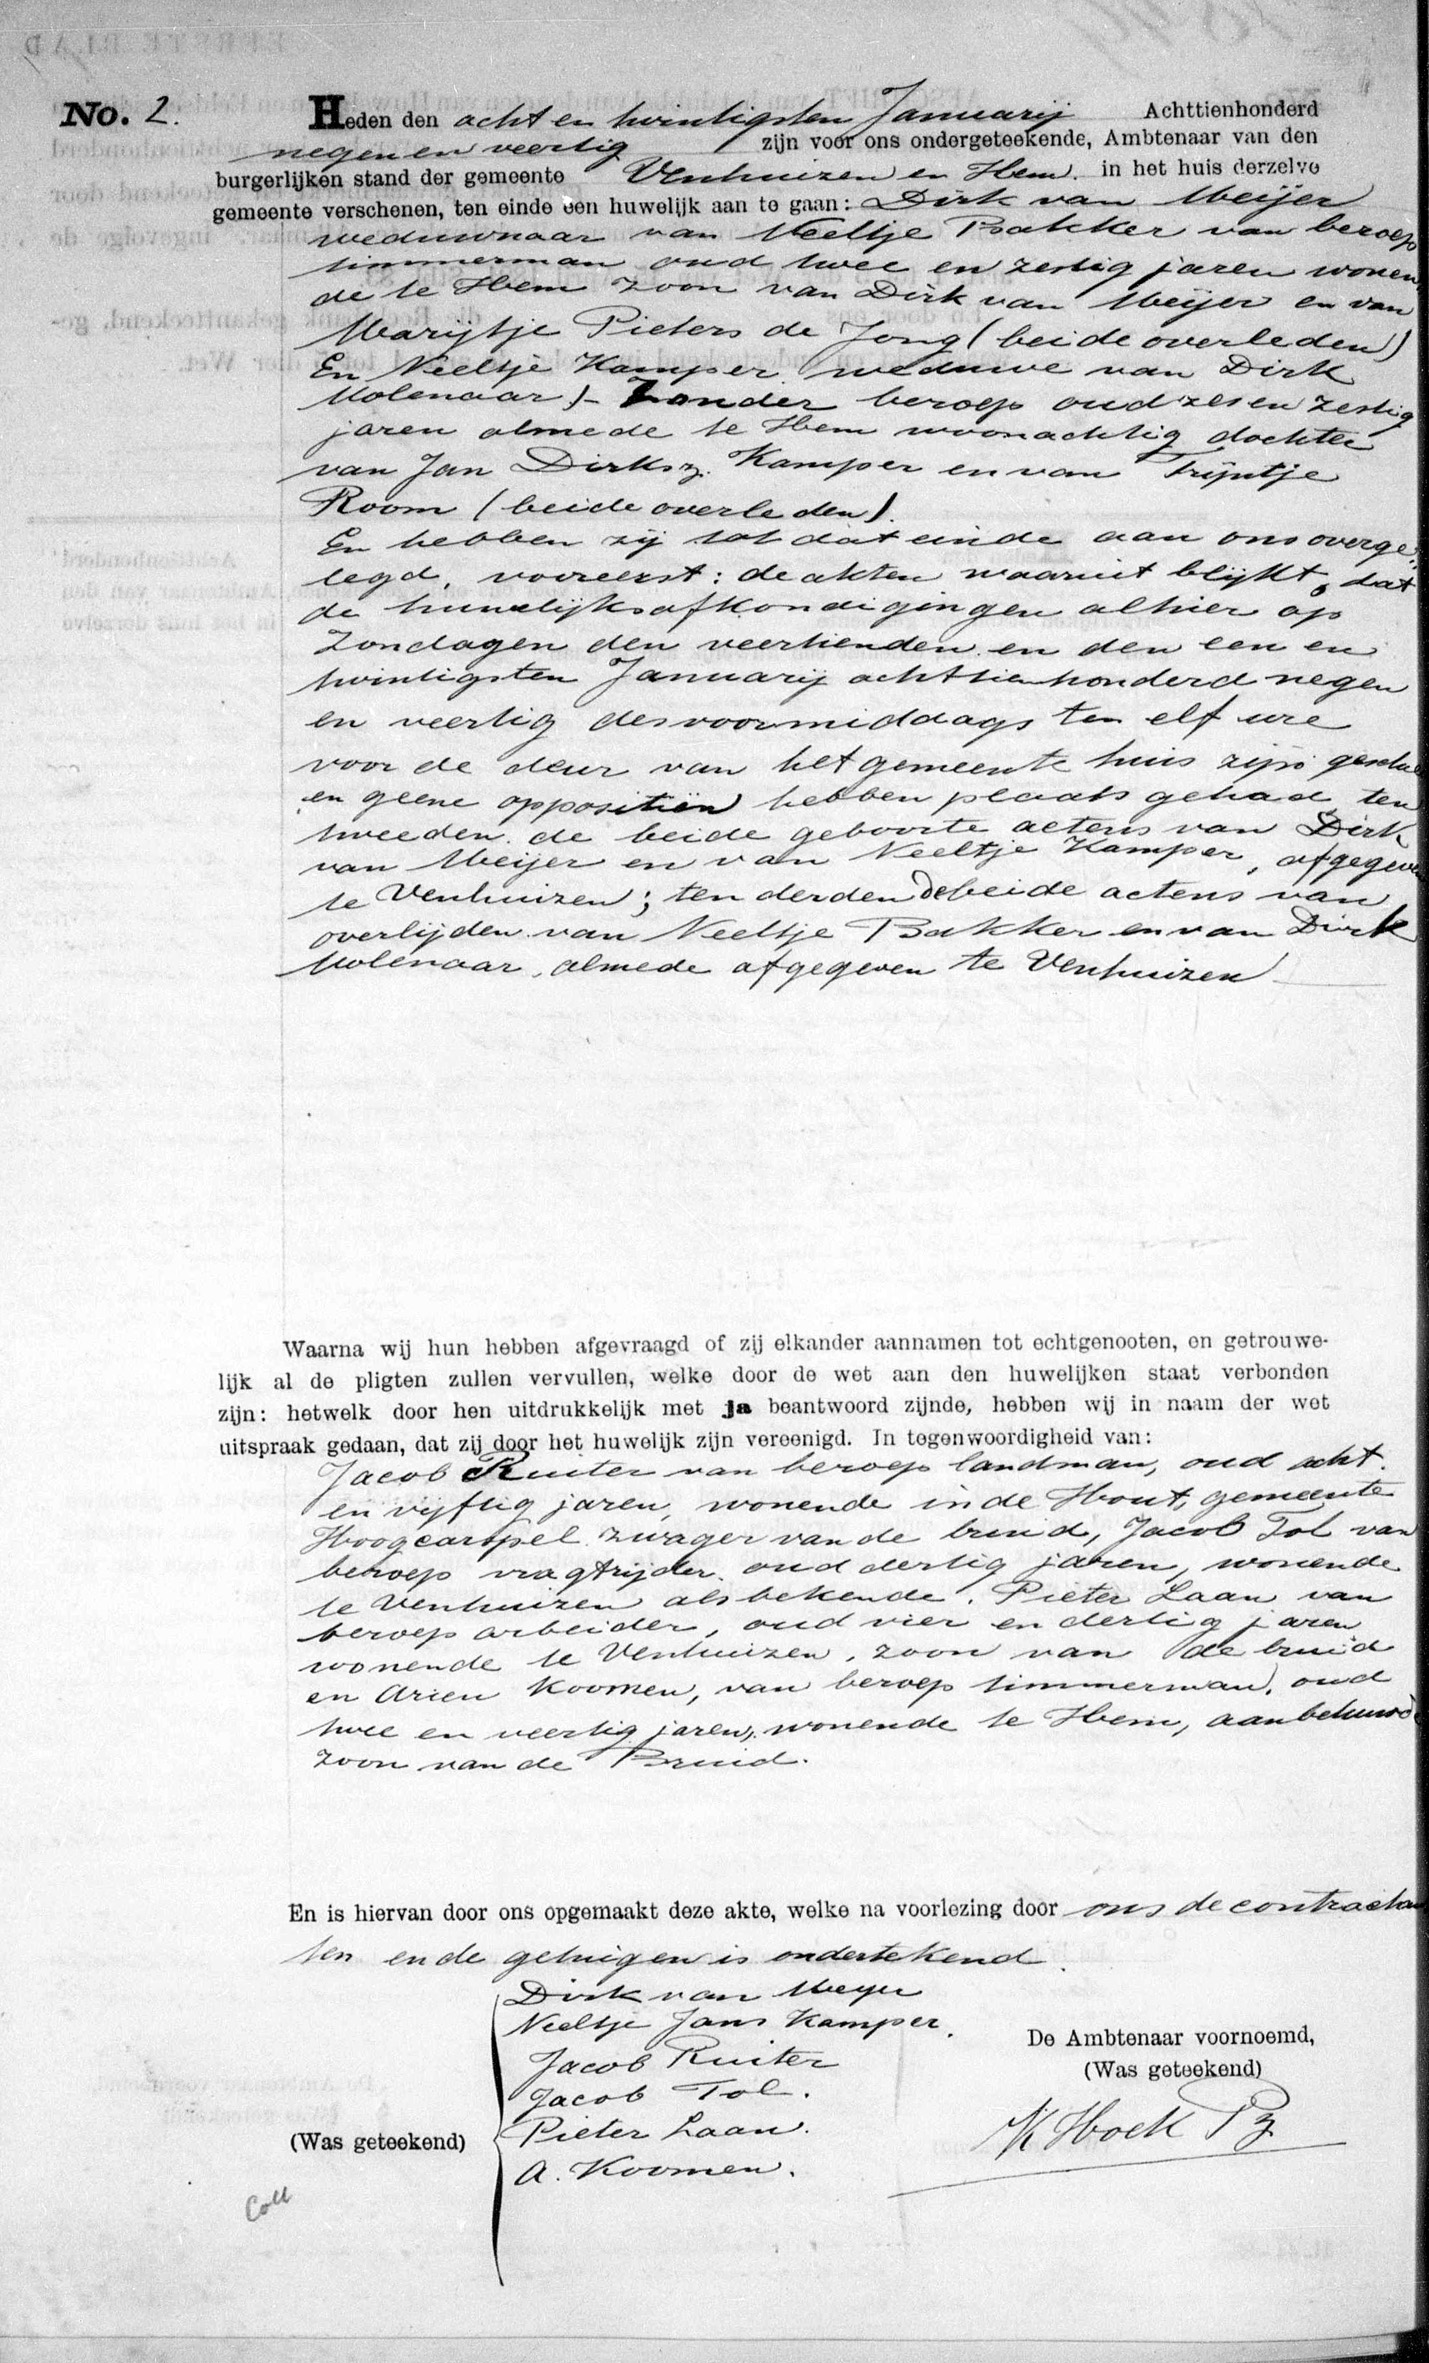 No. 2.
Heden den acht en twintigsten Januarij Achttienhonderd
negen en veertig zijn voor ons ondergeteekende, Ambtenaar van den
burgerlijken stand der gemeente Venhuizen en Hem. in het huis derzelve
gemeente verschenen, ten einde een huwelijk aan te gaan: Dirk van Meijer
weduwnaar van Neeltje Bakker van beroep
timmerman oud twee en zestig jaren wonen
de te Hem zoon van Dirk van Meijer en van
Marijtje Pieters de Jong (beide overleden)
En Neeltje Kamper weduwe van Dirk
Molenaar)- Zonder beroep oud zes en zestig
jaren almede te Hem woonachtig dochter
van Jan Dirksz. Kamper en van Trijntje
Room (beide overleden).
En hebben zij tot dat einde aan ons overge
legd, vooreerst: de akten waaruit blijkt, dat
de huwelijksafkondigingen alhier op
Zondagen den veertienden en den een en
twintigsten Januarij achttienhonderd negen
en veertig des voormiddags ten elf ure
voor de deur van het gemeente huis zijn geschie
en geene oppositiën hebben plaats gehad, ten
tweeden de beide geboorte actens van Dirk
van Meijer en van Neeltje Kamper, afgegeven
te Venhuizen; ten derden de beide actens van
overlijden van Neeltje Bakker en van Dirk
Molenaar, almede afgegeven te Venhuizen
Waarna wij hun hebben afgevraagd of zij elkander aannamen tot echtgenooten, en getrouwe-
lijk al de pligten zullen vervullen, welke door de wet aan den huwelijken staat verbonden
zijn: hetwelk door hen uitdrukkelijk met ja beantwoord zijnde, hebben wij in naam der wet
uitspraak gedaan, dat zij door het huwelijk zijn vereenigd. In tegenwoordigheid van:
Jacob Ruiter van beroep landman, oud acht
en vijftig jaren, wonende in de Hout, gemeente
Hoogcarspel zwager van de bruid, Jacob Tol van
beroep vragtrijder oud dertig jaren, wonende
te Venhuizen als bekende. Pieter Laan van
beroep arbeider, oud vier en dertig jaren
wonende te Venhuizen, zoon van de bruid
en Arien Koomen, van beroep timmerman, oud
twee en veertig jaren, wonende te Hem, aanbehuwde
zoon van de Bruid.
En is hiervan door ons opgemaakt deze akte, welke na voorlezing door ons de contractan
ten en de getuigen is ondertekend.
Dirk van Meyer
Neeltje Jans Kamper.
Jacob Ruiter
Jacob Tol.
(Was geteekend) Pieter Laan.
A. Koomen.
De Ambtenaar voornoemd,
(Was geteekend)
K Hoek Pz
Coll